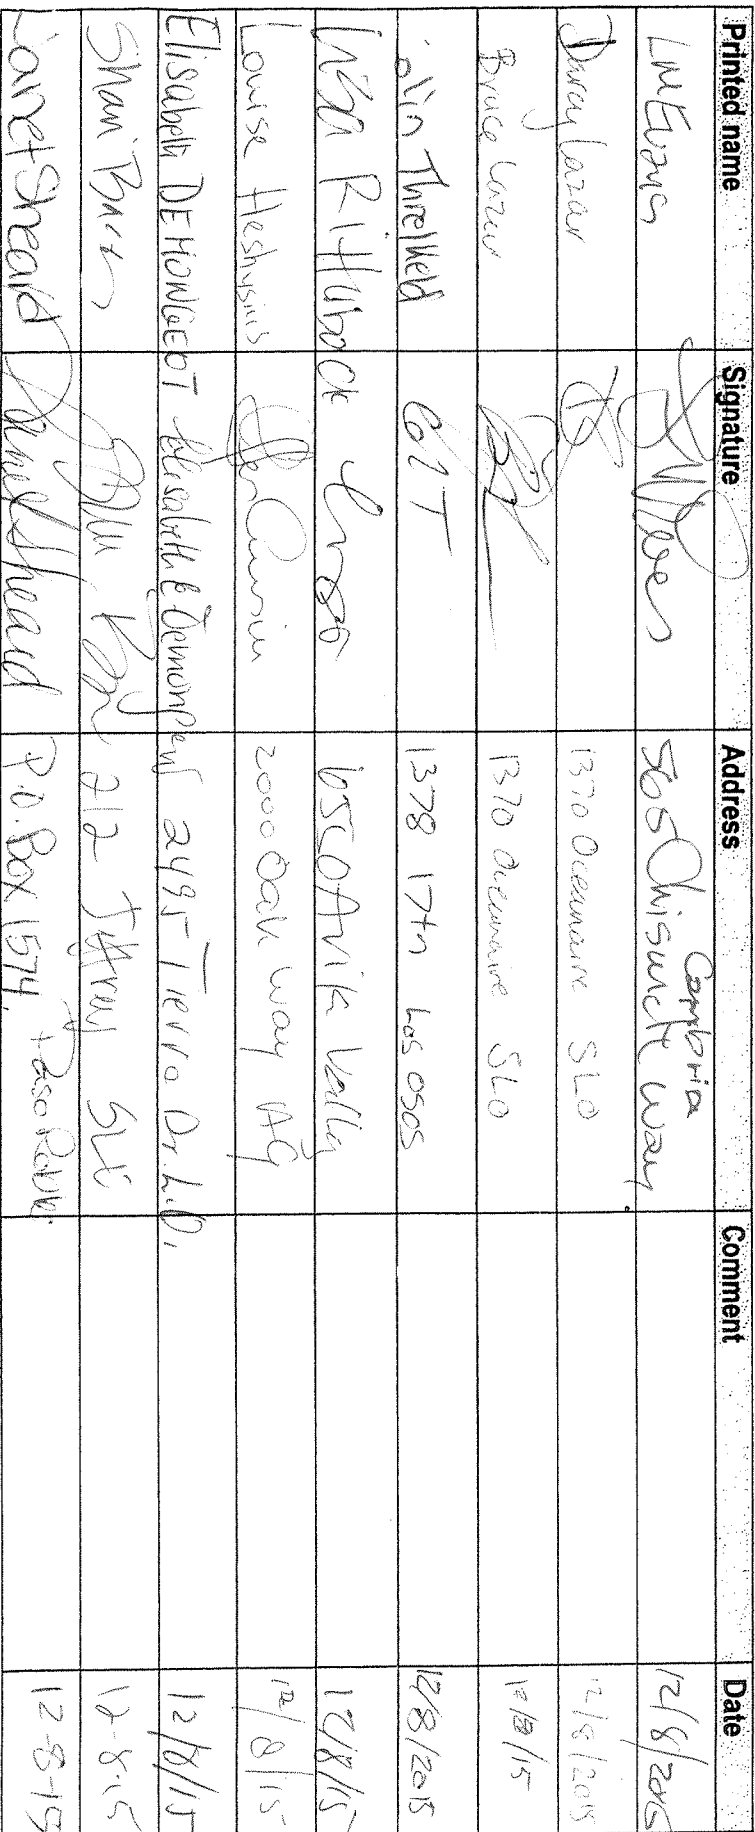 Printed name Signature Address Comment Date
LM Evans 565 Chiswick Way Cambria 12/8/2015
Darcy Lazar 1370 Oceanaire SLO 12/8/2015
Bruce Lazar 1370 Oceanaire SLO 12/8/15
olin Threlkeld GLT 1378 17th Los Osos 12/8/2015
Lisa R Hubock 6550 Avila Valley 12/8/15
Louise Heshusius 2000 Oak Way AG 12/8/15
Elisabeth DEMONGEOT Elisabeth B Demongeot 2495 Tierra Dr. L.O. 12/8/15
Shari 212 Jeffrey 12-8-15
Janet Sheard Janet Sheard P.O. Box 1574, Paso Robles 12-8-15